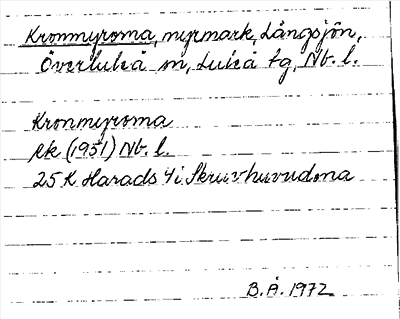 Kronmyroma, myrmark, Långsjön,
Överluleå sn, Luleå tg, Nb. l.
Kronmyroma
rk (1951) Nb. l.
25 K Harads 4 i Skruvhuvudma
B.Å. 1972